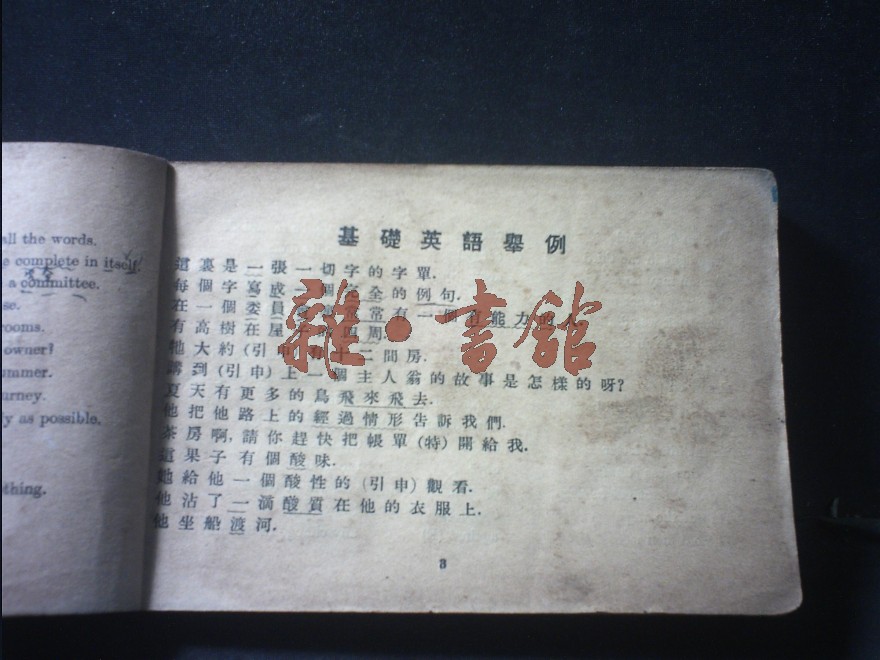 all the words.
e complete in itself!
a committee.
se.
rooms.
owner?
ummer.
urney.
ly as possible.
thing.
基礎英語舉例
這裏是一張一切字的字單.
每個字寫成一個完全的例句.
在一個委員常常有一個有能力的人
有高樹在屋子四周.
牠大約(引申)有十二間房.
講到(引申)上一個主人翁的故事是怎樣的呀?
夏天有更多的鳥飛來飛去.
他把他路上的經過情形告訴我們.
茶房啊,請你趕快把帳單(特)開給我.
這果子有個酸味.
她給他一個酸性的(引申)觀看.
他沾了一滴酸質在他的衣服上.
他坐船渡河.
3
雜·書館